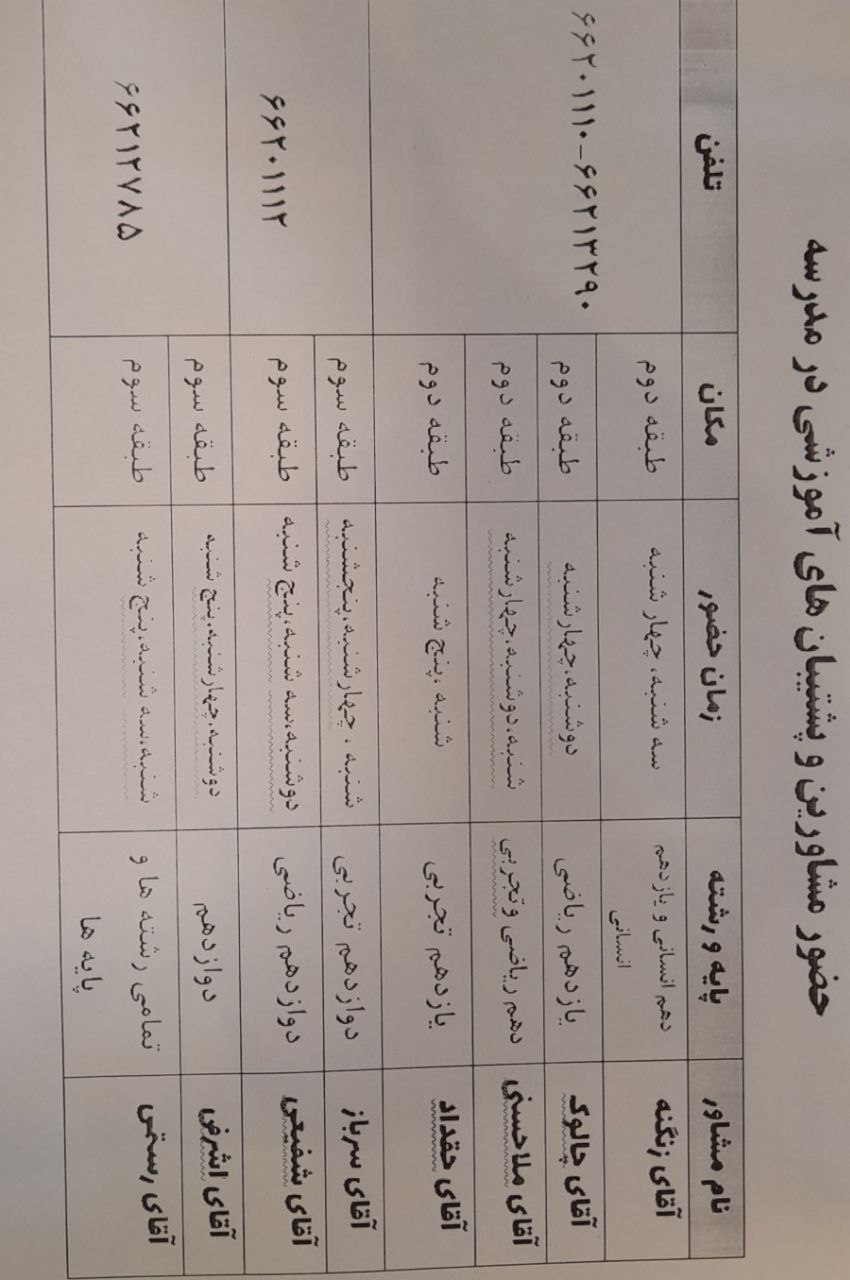 حضور مشاورین و پشتیبان های آموزشی در مدرسه
نام مشاور پایه و رشته زمان حضور مکان تلفن
آقای زنگنه دهم انسانی و یازدهم سه شنبه، چهار شنبه طبقه دوم
انسانی
آقای چالوک یازدهم ریاضی دوشنبه،چهارشنبه طبقه دوم ۶۶۲۰۱۱۱۰-۶۶۲۱۳۲۹۰
آقای ملاحسنی دهم ریاضی وتجربی شنبه،دوشنبه،چهارشنبه طبقه دوم
آقای حقداد یازدهم تجربی شنبه ،پنج شنبه طبقه دوم
آقای سرباز دوازدهم تجربی شنبه ، چهارشنبه،پنجشنبه طبقه سوم
آقای شفیعی دوازدهم ریاضی دوشنبه،سه شنبه،پنج شنبه طبقه سوم ۶۶۲۰۱۱۱۲
آقای اشرفی دوازدهم دوشنبه،چهارشنبه،پنج شنبه طبقه سوم
آقای رستمی تمامی رشته ها و شنبه،سه شنبه،پنج شنبه طبقه سوم ۶۶۲۱۲۷۸۵
پایه ها